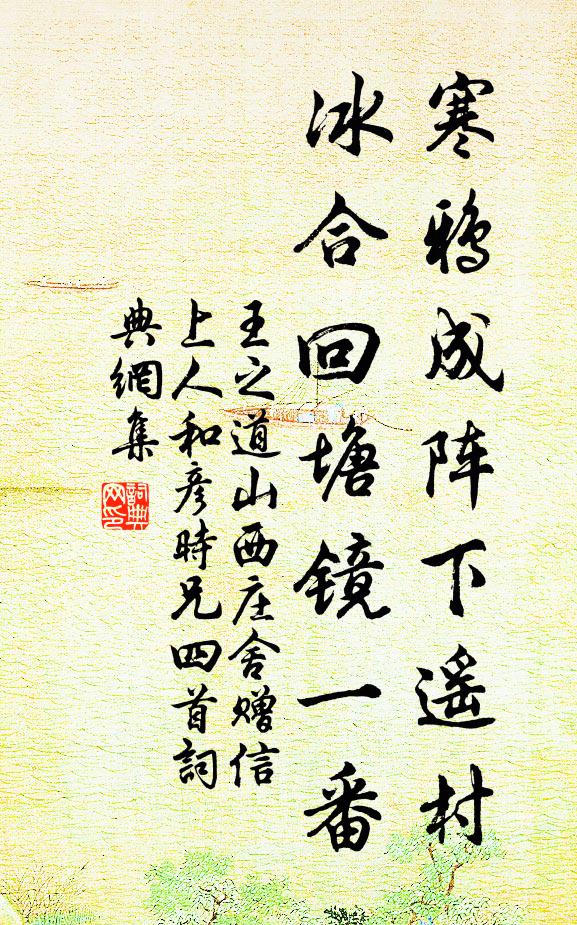 寒鸦成阵下遥村
冰合回塘镜一番
王之道山西庄舍赠信
上人和彦时兄四首詞
典網集
詞典
网印